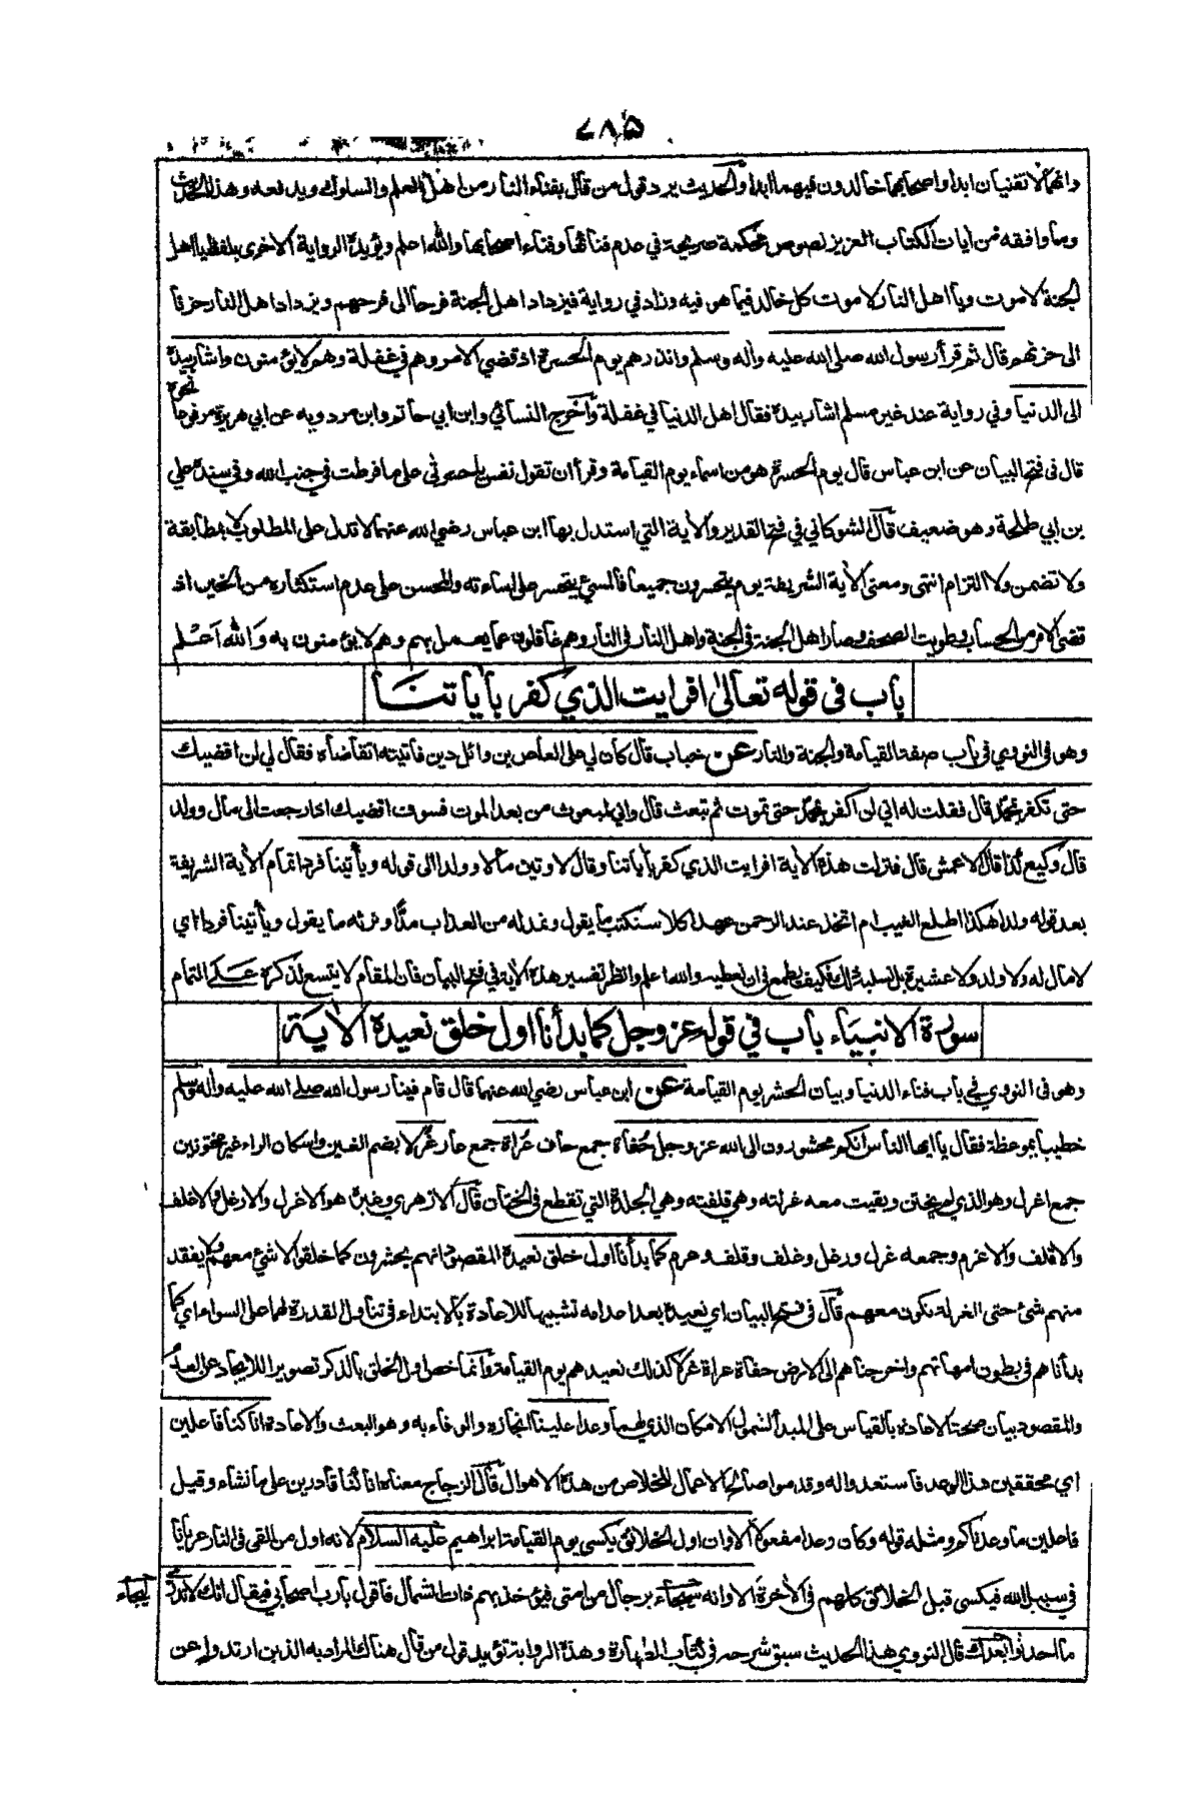 ٧٨٥
دائما لا تفنيان ابدا واصحابهما خالدون فيهما ابدا والحديث يرد قول من قال بفناء النار من اهل العلم والسلوك ويدفعه وهذا الحديث
وما وافقه من ايات الكتاب العزيز نصوص محكمة صريحة في عدم فنائهما وفناء اصحابهما والله اعلم ويؤيده الرواية الاخرى بلفظ يا اهل
الجنة لا موت ويا اهل النار لا موت كل خالد فيما هو فيه وزاد في رواية فيزداد اهل الجنة فرحا الى فرحهم ويزداد اهل النار حزنا
الى حزنهم قال ثم قرأ رسول الله صلى الله عليه وآله وسلم وانذرهم يوم الحسرة اذ قضي الامر وهم في غفلة وهم لا يؤمنون واشار بيده
نحوه
الى الدنيا وفي رواية عند غير مسلم اشار بيده فقال اهل الدنيا في غفلة وأخرج النسائي وابن ابي حاتم وابن مردويه عن ابي هريرة مرفوعا
قال في فتح البيان عن ابن عباس قال يوم الحسرة هو من اسماء يوم القيامة وقرأ ان تقول نفس يا حسرتى على ما فرطت في جنب الله وفي سنده علي
بن ابي طلحة وهو ضعيف قال الشوكاني في فتح القدير والآية التي استدل بها ابن عباس رضي الله عنهما لا تدل على المطلوب لا بمطابقة
ولا تضمن ولا التزام انتهى ومعنى الآية الشريفة يوم يتحسرون جميعا فالمسئ يتحسر على اساءته والمحسن على عدم استكثاره من الخير اذ
قضي الامر من الحساب وطويت الصحف وصار اهل الجنة في الجنة واهل النار في النار وهم غافلون عما يعمل بهم وهم لا يؤمنون به والله اعلم
باب في قوله تعالى افرايت الذي كفر بآياتنا
وهو في النووي في باب صفة القيامة والجنة والنار عن خباب قال كان لي على العاص بن وائل دين فأتيته اتقاضاه فقال لي لن اقضيك
حتى تكفر بمحمد قال فقلت له اني لن اكفر بمحمد حتى تموت ثم تبعث قال واني لمبعوث من بعد الموت فسوف اقضيك اذا رجعت الى مال وولد
قال وكيع كذا قال الاعمش قال فنزلت هذه الآية افرايت الذي كفر بآياتنا وقال لاوتين مالا وولدا الى قوله ويأتينا فردا تمام الآية الشريفة
بعد قوله ولدا هكذا اطلع الغيب ام اتخذ عند الرحمن عهدا كلا سنكتب ما يقول ونمد له من العذاب مدا ونرثه ما يقول ويأتينا فردا اي
لا مال له ولا ولد ولا عشيرة بل نسلبه ذلك فكيف يطمع في ان نعطيه والله اعلم وانظر تفسير هذه الآية في فتح البيان فان المقام لا يتسع لذكره على التمام
سورة الانبياء باب في قوله عز وجل كما بدأنا اول خلق نعيده الآية
وهو في النووي في باب فناء الدنيا وبيان الحشر يوم القيامة عن ابن عباس رضي الله عنهما قال قام فينا رسول الله صلى الله عليه وآله وسلم
خطيبا بموعظة فقال يا ايها الناس انكم محشورون الى الله عز وجل حفاة جمع حاف عراة جمع عار غرلا بضم الغين واسكان الراء غير مختونين
جمع اغرل وهو الذي لم يختن وبقيت معه غرلته وهي قلفته وهي الجلدة التي تقطع في الختان قال الازهري وغيره هو الاغرل والارغل والاغلف
والاقلف والاعرم وجمعه غرل ورغل وغلف وقلف وعرم كما بدأنا اول خلق نعيده المقصود انهم يحشرون كما خلقوا لا شئ معهم ولا يفقد
منهم شئ حتى الغرلة تكون معهم قال في فتح البيان اي نعيده بعد اعدامه تشبيها للاعادة بالابتداء في تناول القدرة لهما على السواء اي كما
بدأناهم في بطون امهاتهم واخرجناهم الى الارض حفاة عراة غرلا كذلك نعيدهم يوم القيامة وانما خص اول الخلق بالذكر تصويرا للايجاد عن العدم
والمقصود بيان صحة الاعادة بالقياس على المبدأ لشمول الامكان الذي لهما وعدا علينا انجازه والوفاء به وهو البعث والاعادة انا كنا فاعلين
اي محققين هذا الوعد فاستعدوا له وقدموا صالح الاعمال للخلاص من هذه الاهوال قال الزجاج معناه انا كنا قادرين على ما نشاء وقيل
فاعلين ما وعدناكم ومثله قوله وكان وعده مفعولا الا وان اول الخلائق يكسى يوم القيامة ابراهيم عليه السلام لانه اول من القي في النار عريانا
في سبيل الله فيكسى قبل الخلائق كلهم في الآخرة الا وانه سيجاء برجال من امتي فيؤخذ بهم ذات الشمال فاقول يا رب اصحابي فيقال انك لا تدري
يجاء
ما احدثوا بعدك قال النووي هذا الحديث سبق شرحه في كتاب الطهارة وهذه الرواية تؤيد قول من قال هناك المراد به الذين ارتدوا عن